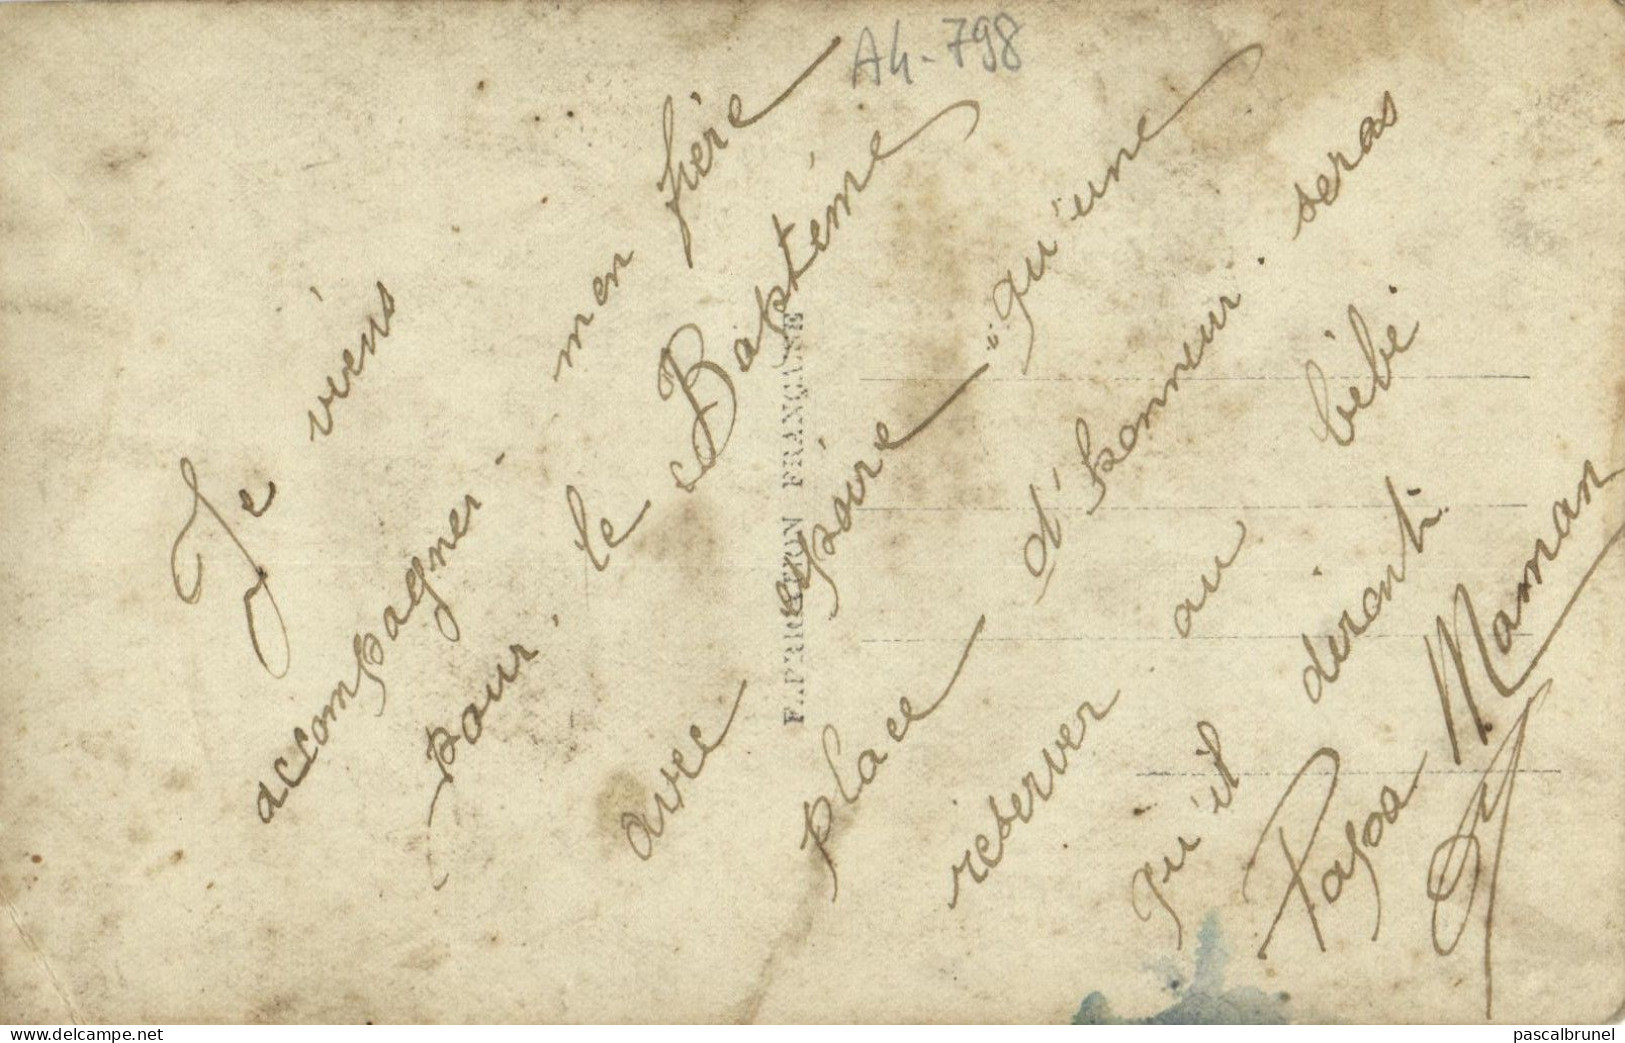 A4-798
Je viens
accompagner mon frère
pour le Baptéme
avec espoire "qu'une
place d'honneur seras
reserver au bébé
qu'il diront
Papa Maman
F. APPRÉCIATION FRANÇAISE
delcampe.net
pascalbrunel